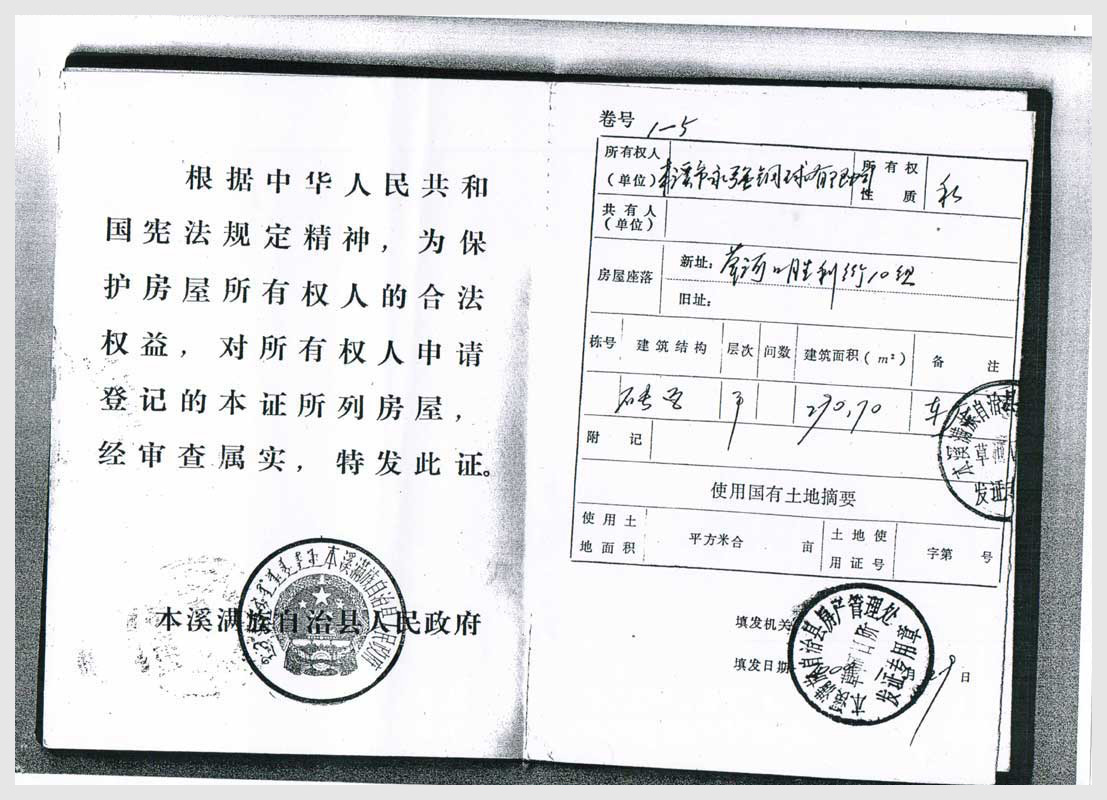 根据中华人民共和
国宪法规定精神，为保
护房屋所有权人的合法
权益，对所有权人申请
登记的本证所列房屋，
经审查属实，特发此证。
本溪满族自治县人民政府
本溪满族自治县人民政府
卷号 1-5
所有权人
（单位）
本溪市永强钢球有限公司
所有权
性质
私
共有人
（单位）
房屋座落
新址：草河口胜利街10组
旧址：
栋号 建筑结构 层次 间数 建筑面积（m²） 备注
290.70
附记
使用国有土地摘要
使用土
地面积
平方米合 亩
土地使
用证号
字第 号
本溪满族自治县
发证专
填发机关
填发日期
日
本溪满族自治县房产管理处
发证专用章